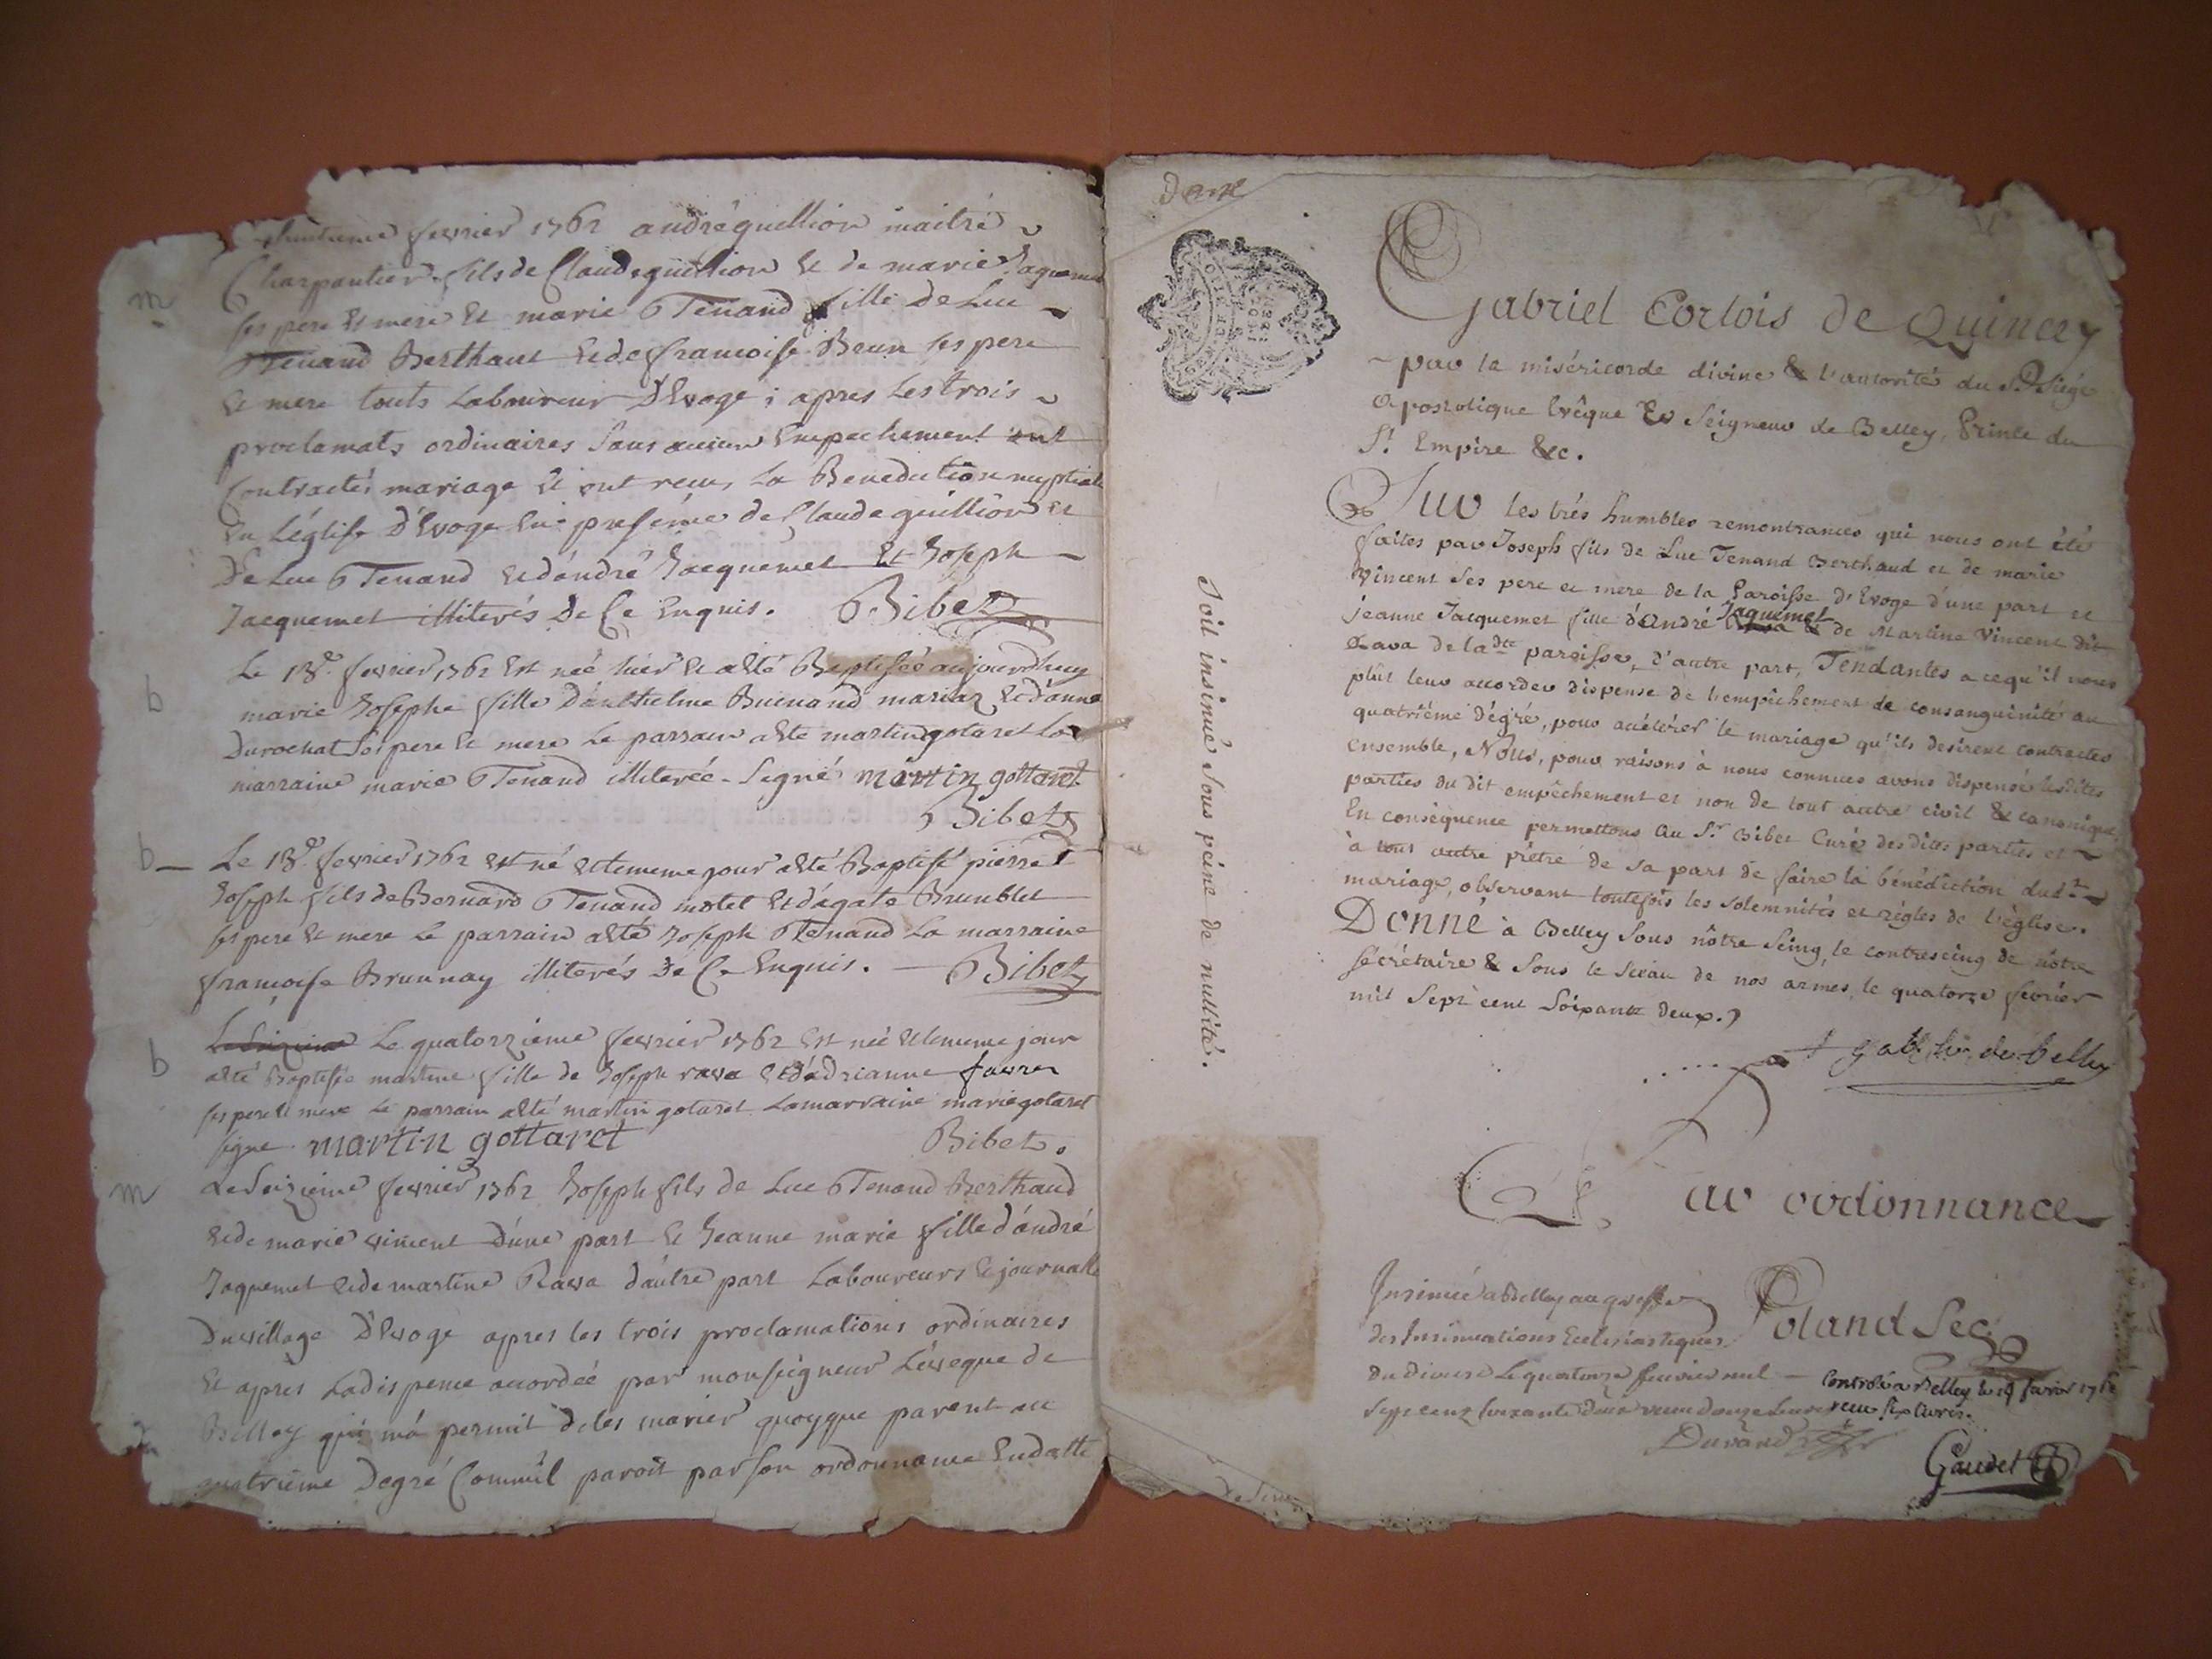 m
fevrier 1762 andré guillion maitre
Charpantier fils de Claude guillion & de marie Jaquemet
ses pere & mere & marie Tenand fille de Luc
Tenand Berthaut & de francoise Brun ses pere
& mere touts Laboureur D'Evoge ; apres les trois
proclamats ordinaires sans aucun Empechement ont
Contracté mariage & ont recu La Benediction nuptiale
En L'église D'Evoge En presence de Claude guillion &
De Luc Tenand & d'andré Jacquemet Et Joseph
Jacquemet illiterés De Ce Enquis. Bibet
b
Le 13e. fevrier 1762 Est née hier & a été Baptisée aujourdhuy
marie Josephe fille d'anthelme Buenand mariaz & d'anne
Durochat ses pere & mere Le parrain a été martin gotaret La
marraine marie Tenand illiterée. Signé martin gottaret
Bibet
b
Le 13e. fevrier 1762 est né & le meme jour a été Baptisé pierre
Joseph fils de Bernard Tenand molet & d'agate Brunblet
ses pere & mere Le parrain a été Joseph Tenand La marraine
francoise Brunnay illiterés De Ce Enquis. Bibet
b
Le quatorzieme fevrier 1762 Est née & le meme jour
a été Baptisée martine fille de Joseph rava & d'adrianne favre
ses pere & mere Le parrain a été martin gotaret La marraine marie gotaret
signe martin gottaret Bibet.
m
Le Seizieme fevrier 1762 Joseph fils de Luc Tenand Berthaud
& de marie vincent d'une part & Jeanne marie fille d'andré
Jaquemet & de martine Rava d'autre part Laboureurs &
Du village D'Evoge apres les trois proclamations ordinaires
Et apres La dispence accordée par monseigneur L'éveque de
Belley qui m'a permit de les marier quoyque parent au
quatrieme degré Comm'il paroit par son ordonnance En datte
Soit insinué sous peine de nullité.
Gabriel Cortois de Quincey
par la miséricorde divine & l'autorité du St. Siége
apostolique Evêque & Seigneur de Belley, Prince du
St. Empire &c.
Sur les trés humbles remontrances qui nous ont été
faites par Joseph fils de Luc Tenand Berthaud et de marie
Vincent ses pere et mere de la Paroisse d'Evoge d'une part et
jeanne Jacquemet fille d'André Jaquemet & de Martine Vincent dit
Rava de la dte paroisse, d'autre part, Tendantes a ce qu'il nous
plût leur accorder dispense de l'empêchement de consanguinité au
quatriéme dégré, pour accélérer le mariage qu'ils desirent contracter
ensemble, Nous, pour raisons à nous connues avons dispensé lesdites
parties du dit empêchement et non de tout autre civil & canonique,
En conséquence permettons au Sr. Bibet Curé des dites parties et
à tout autre prêtre de sa part de faire la bénédiction dudt
mariage, observant toutefois les solemnités et régles de l'église.
Donné à Belley sous nôtre seing, le contreseing de nôtre
sécrétaire & sous le sceau de nos armes, le quatorze fevrier
mil sept cent soixante deux.
† Gab. Ev. de Belley
Par ordonnance
Poland Sec
Insinué a Belley au greffe
des Insinuations Ecclesiastiques
du Diocese Le quatorze fevrier mil
sept cent soixante deux recu douze Livres
Durand
Controlé a Belley le 14 fevrier 1762
recu six livres.
Gaudet